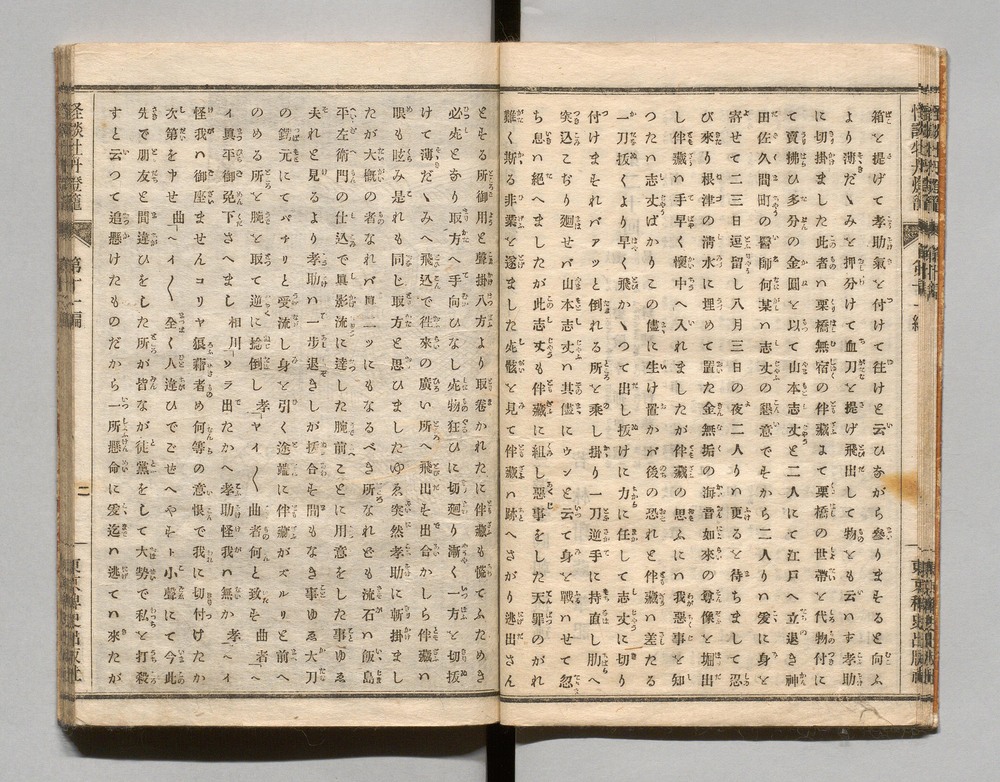 箱を提げて孝助氣を付けて往けと云ひながら參りますると向ふ
より薄だゝみを押分けて血刀を提げ飛出して物をも云いず孝助
に切掛ました此者ハ栗橋無宿の伴藏よて栗橋の世帶を代物付に
て賣拂ひ多分の金圓を以て山本志丈と二人にて江戸へ立退き神
田佐久間町の醫師何某ハ志丈の懇意でそから二人ハ爰に身を
寄せて二三日逗留し八月三日の夜二人ハ更るを待ちまして忍
び來り根津の清水に埋めて置た金無垢の海音如來の尊像を堀出
し伴藏ハ手早く懷中へ入れましたが伴藏の思ふにハ我惡事を知
つたハ志丈ばかりこの儘に生け置かバ後の恐れと伴藏ハ差たる
一刀拔くより早く飛かゝつて出し拔けに力に任して志丈に切り
付けまそれバアッと倒れる所を乘し掛り一刀逆手に持直し肋へ
突込こぢり廻せバ山本志丈ハ其儘にウンと云て身を戰いせて忽
ち息ハ絶へましたが此志丈も伴藏に組し惡事をした天罪のがれ
難く斯る非業を遂ました死骸を見て伴藏ハ跡へさがり逃出さん
とそる所御用と聲掛八方より取卷かれたに伴藏も慌てふためき
必死となり取方へ手向ひなし死物狂ひに切廻り漸く一方を切拔
けて薄だゝみへ飛込で往來の廣い所へ飛出そ出合がしら伴藏ハ
眼も眩み是れも同じ取方と思ひましたゆゑ突然孝助に斬掛まし
たが大概の者なれバ眞二ッにもなるべき所なれども流石ハ飯島
平左衛門の仕込で眞影流に達した腕前ことに用意をした事ゆゑ
夫れと見るより孝助ハ一歩退きしが拔合そ間もなき事ゆゑ大刀
の鍔元にてパチリと受流し身を引く途端に伴藏がズルリと前へ
のめる所を腕を取て逆に捻倒し孝「ヤイ〱曲者何と致そ曲者「へ
イ眞平御免下さへまし相川「ソラ出たかへ孝助怪我ハ無か孝「へイ
怪我ハ御座ませんコリヤ狼藉者め何等の意恨で我に切付けたか
次第を申せ曲「へイ〱全く人違ひでごせへやそト小聲にて今此
先で朋友と間違ひをした所が皆なが徒黨をして大勢で私を打殺
すと云つて追懸けたものだから一所懸命に爰迄ハ逃ていた來たが
怪談牡丹燈籠
第十一編
二
東京稗史出版社